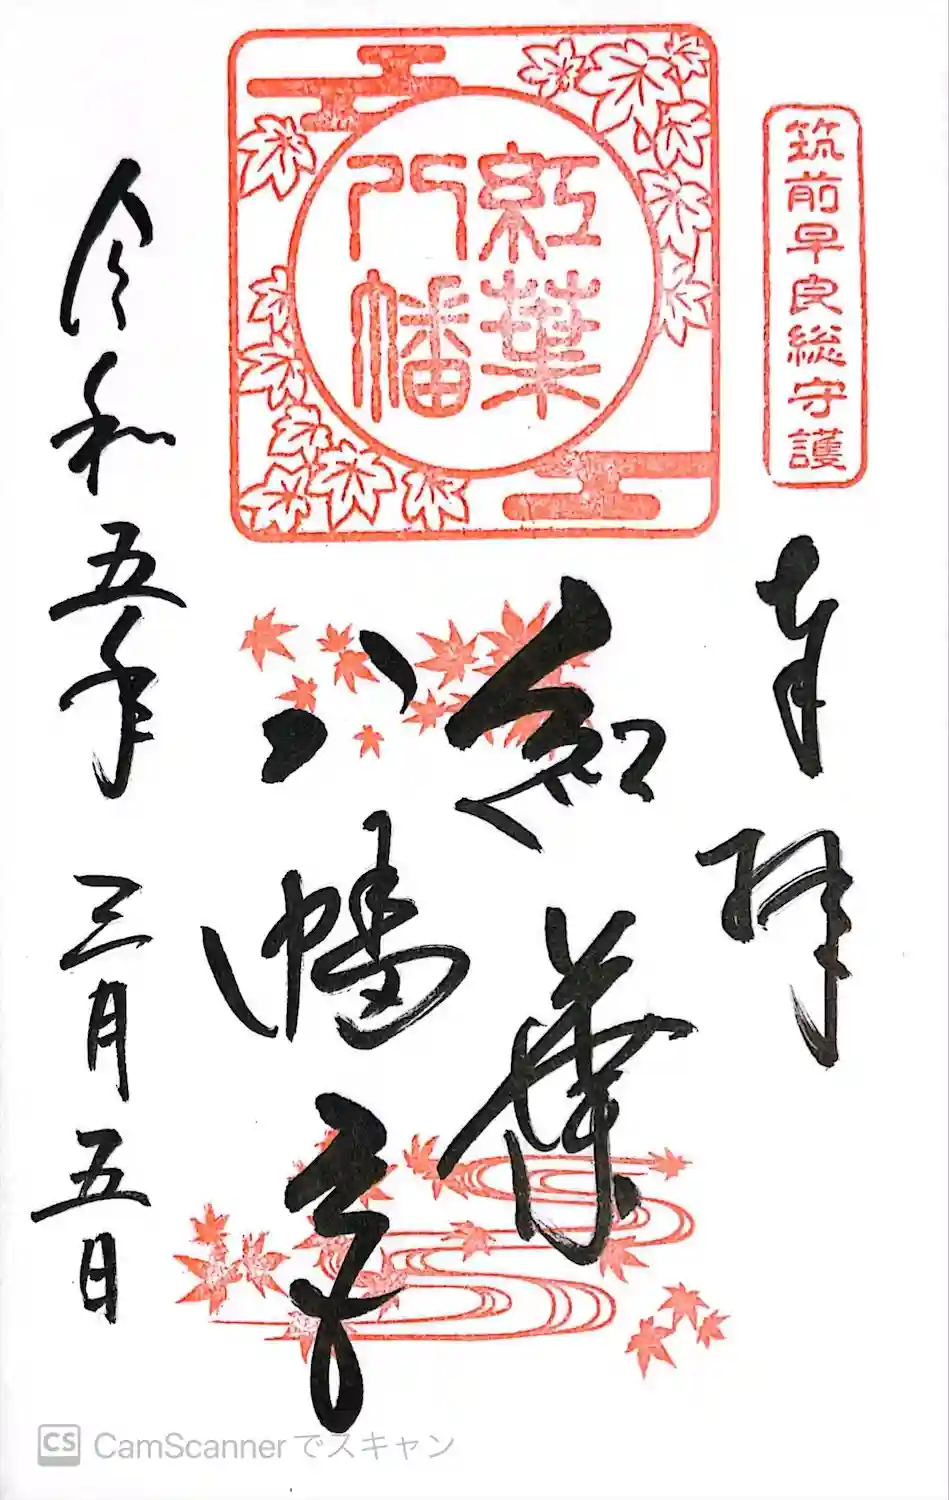 筑前早良総守護
奉拝
紅葉
八幡
紅葉
八幡宮
令和五年三月五日
CS CamScannerでスキャン